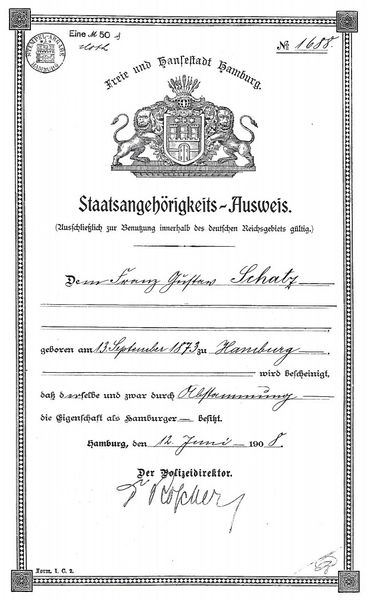 STEMPEL-ABGABE
HAMBURG
Eine ℳ 50 ₰
№ 1688.
Freie und Hansestadt Hamburg.
Staatsangehörigkeits-Ausweis.
(Ausschließlich zur Benutzung innerhalb des deutschen Reichsgebiets gültig.)
Dem Franz Gustav Schatz
geboren am 13 September 1873 zu Hamburg
wird bescheinigt,
daß derselbe und zwar durch Abstammung
die Eigenschaft als Hamburger besitzt.
Hamburg, den 12. Juni 1908.
Der Polizeidirektor.
Dr Roscher
Form. I. C. 2.